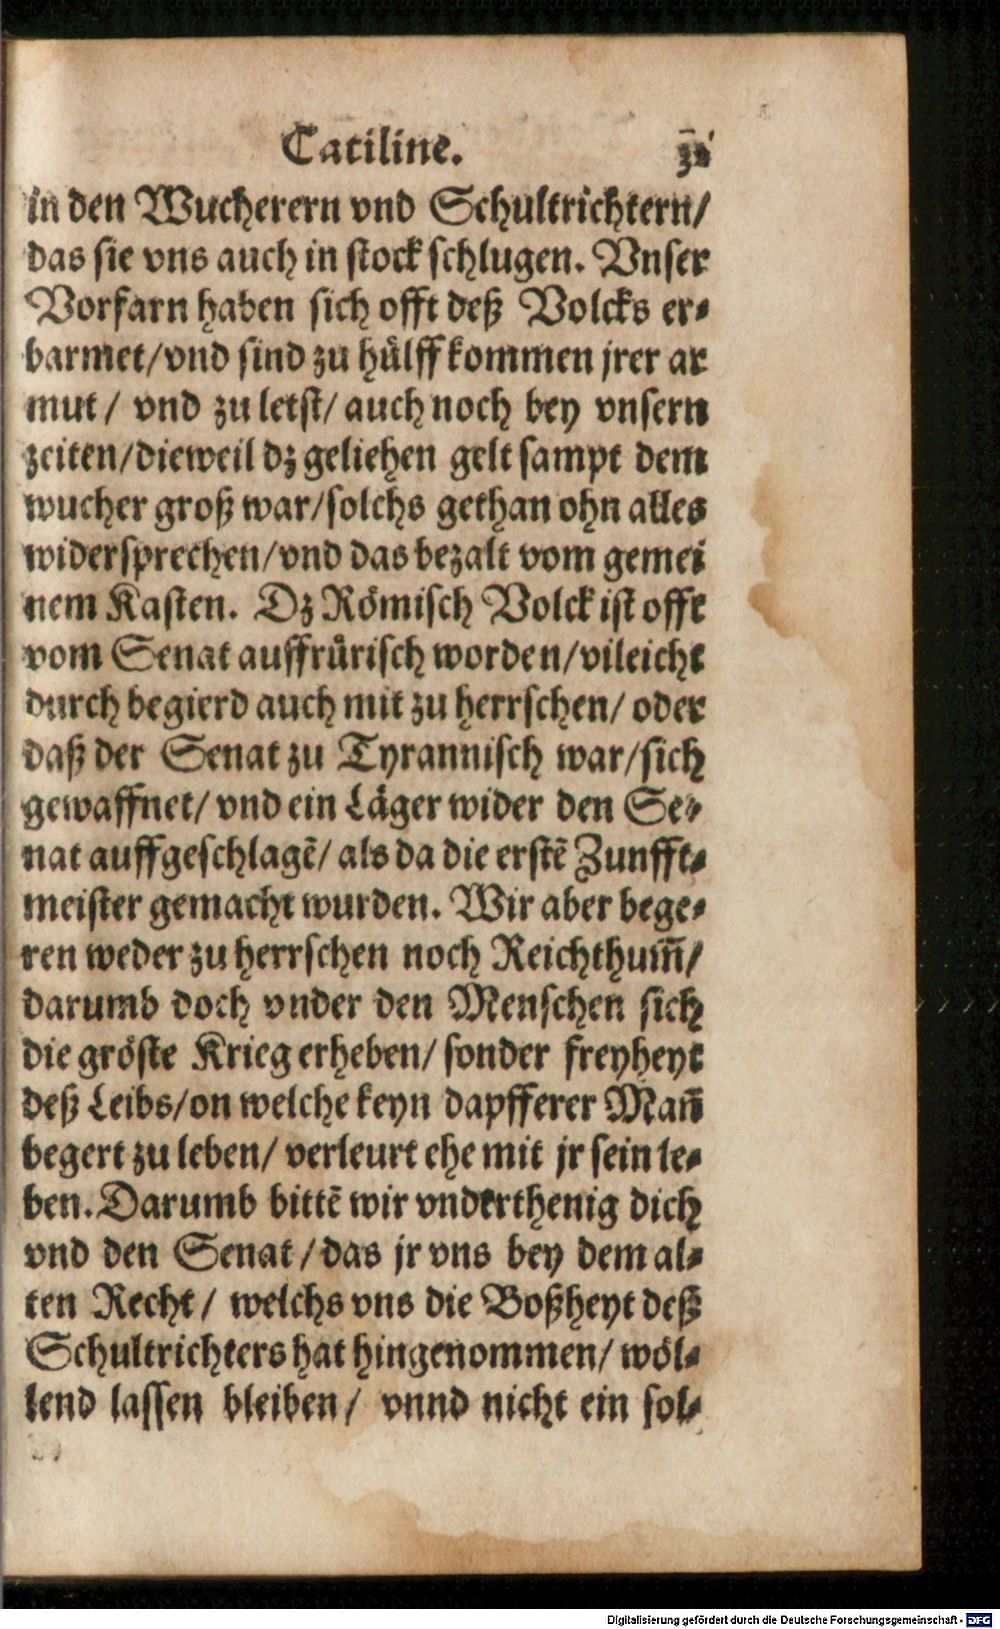 Catiline.
in den Wucherern vnd Schultrichtern/
das sie vns auch in stock schlugen. Vnser
Vorfarn haben sich offt deß Volcks er-
barmet/vnd sind zu hůlff kommen jrer ar
mut / vnd zu letst/ auch noch bey vnsern
zeiten/dieweil dz geliehen gelt sampt dem
wucher groß war/solchs gethan ohn alles
widersprechen/vnd das bezalt vom gemei
nem Kasten. Dz Römisch Volck ist offt
vom Senat auffrůrisch worden/vileicht
durch begierd auch mit zu herrschen/ oder
daß der Senat zu Tyrannisch war/sich
gewaffnet/ vnd ein Läger wider den Se-
nat auffgeschlagē/ als da die erstē Zunfft-
meister gemacht wurden. Wir aber bege-
ren weder zu herrschen noch Reichthum̃/
darumb doch vnder den Menschen sich
die gröste Krieg erheben/ sonder freyheyt
deß Leibs/on welche keyn dapfferer Mañ
begert zu leben/ verleurt ehe mit jr sein le-
ben. Darumb bittē wir vnderthenig dich
vnd den Senat / das jr vns bey dem al-
ten Recht / welchs vns die Boßheyt deß
Schultrichters hat hingenommen/ wöl-
lend lassen bleiben / vnnd nicht ein sol-
Digitalisierung gefördert durch die Deutsche Forschungsgemeinschaft - DFG